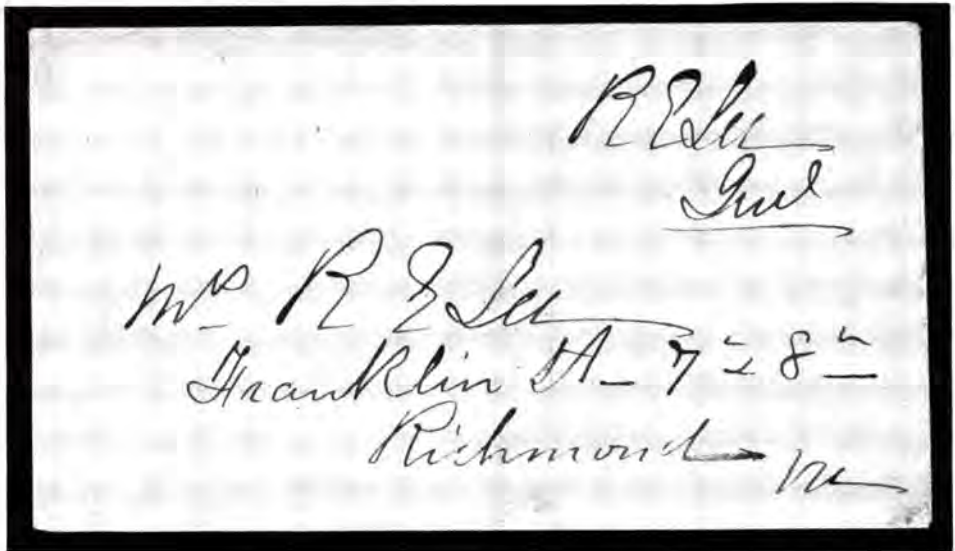 R E Lee
Genl
Mrs R E Lee
Franklin St - 7th & 8th
Richmond
Va